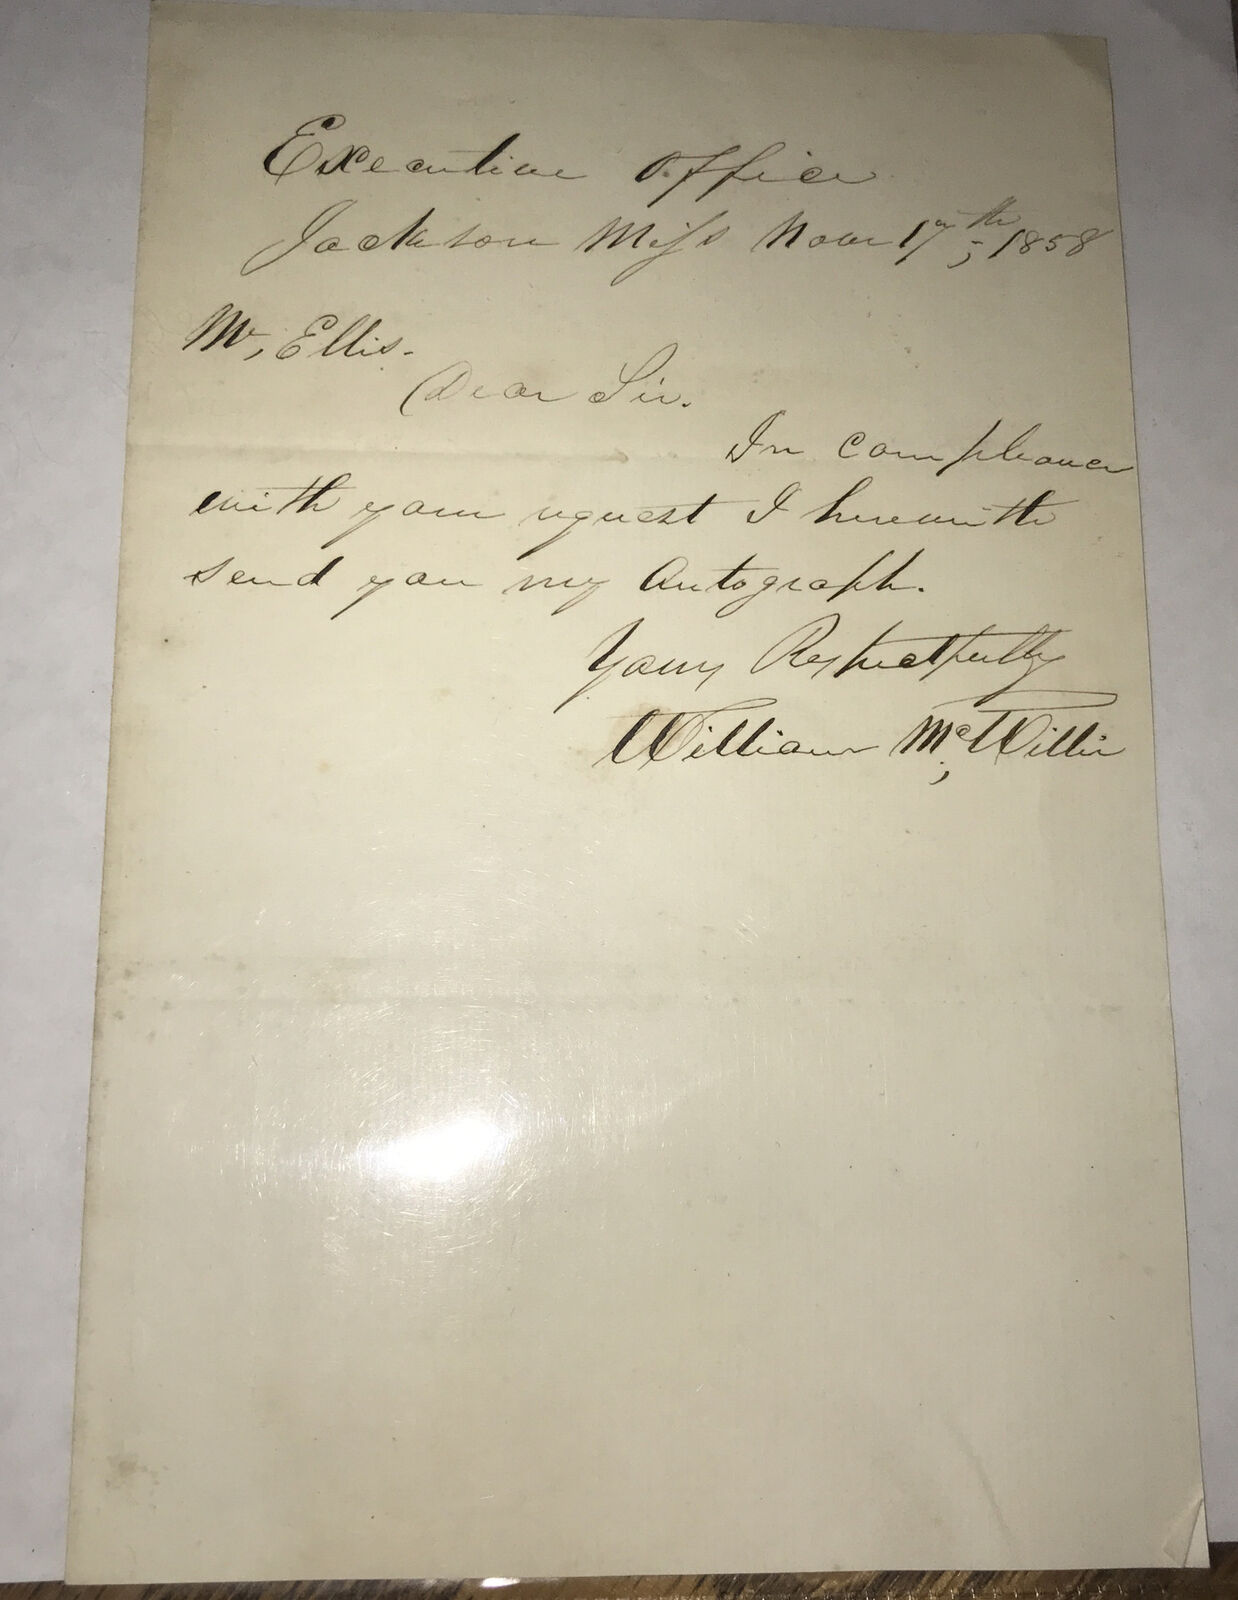 Executive Office
Jackson Miss Novr 17th, 1858
Mr, Ellis.
Dear Sir.
In compliance
with your request I herewith
send you my Autograph.
Yours Respectfully
William McWillie